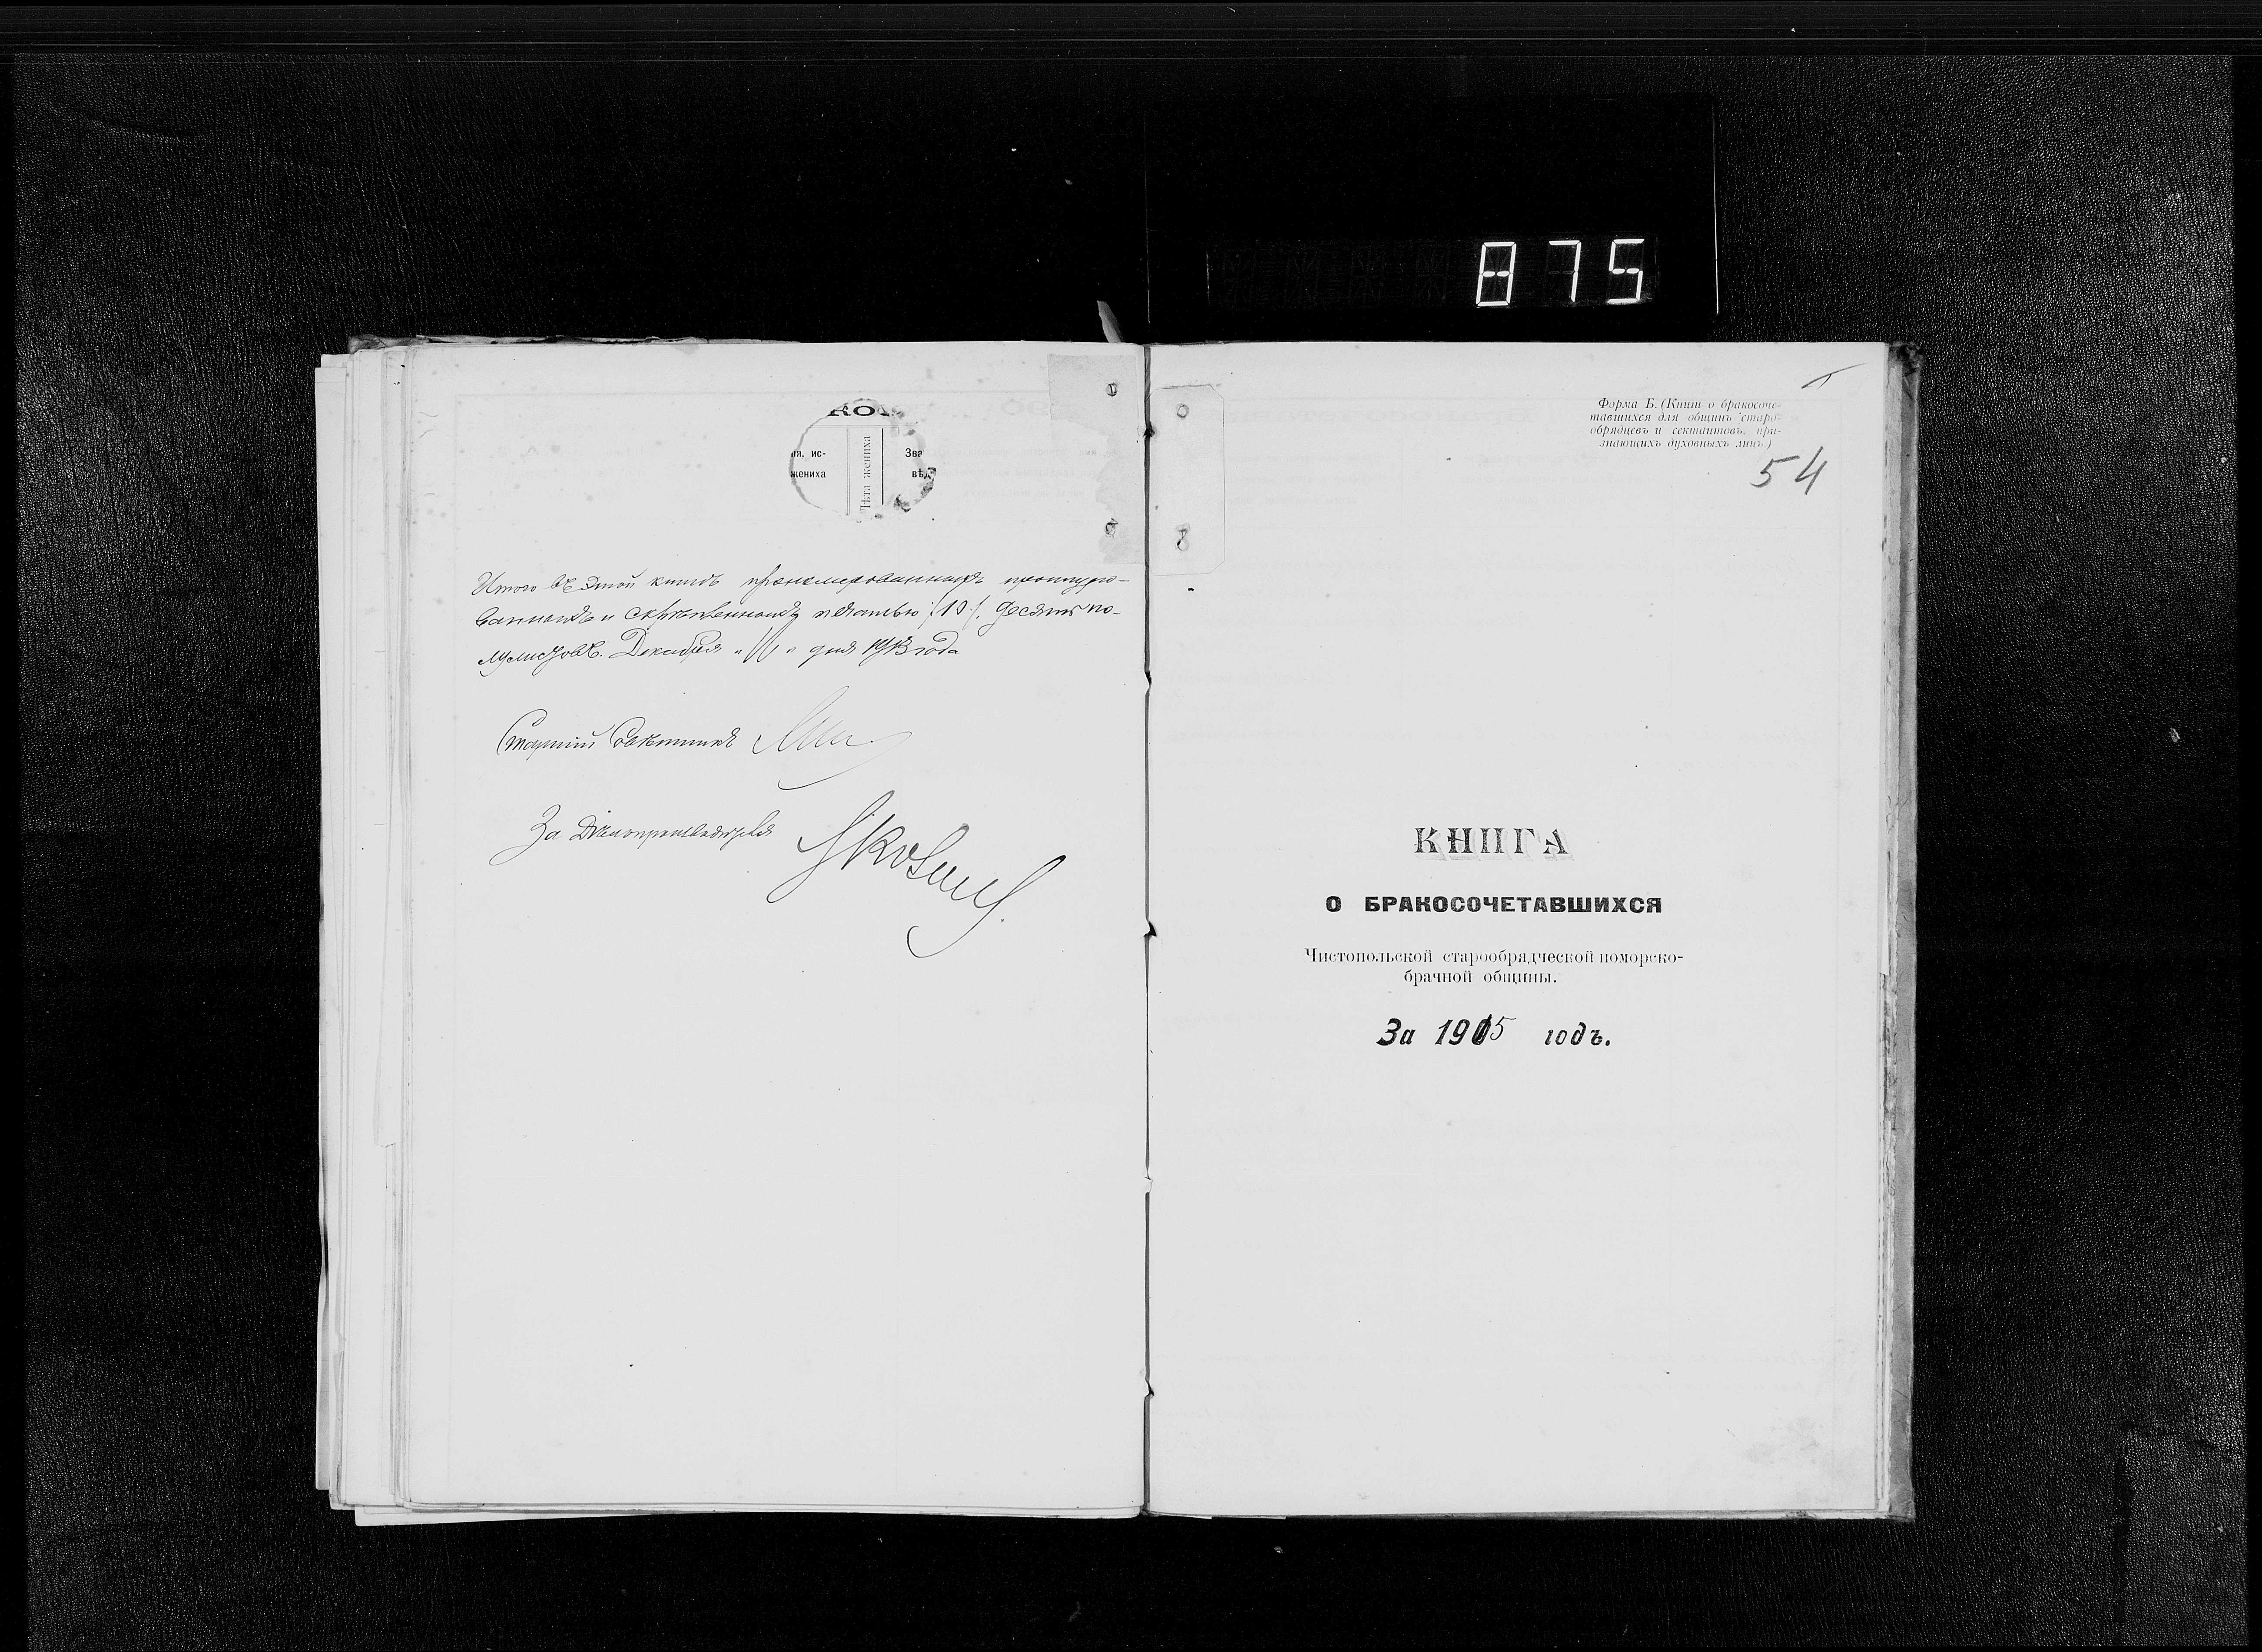 875
КОМ
ия, ис-
жениха
Лѣта жениха
Зва
вѣд
Итого въ этой книгѣ пронумерованныхъ прошнуро-
ванныхъ и скрѣпленныхъ печатью /10/. десять по-
лулистовъ. Декабря " " дня 1913 года
Старшій Совѣтникъ
За Дѣлопроизводителя
Форма Б. (Книги о бракосоче-
тавшихся для общинъ старо-
обрядцевъ и сектантовъ, при-
знающихъ духовныхъ лицъ.)
54
КНИГА
О БРАКОСОЧЕТАВШИХСЯ
Чистопольской старообрядческой поморско-
брачной общины.
За 1915 годъ.